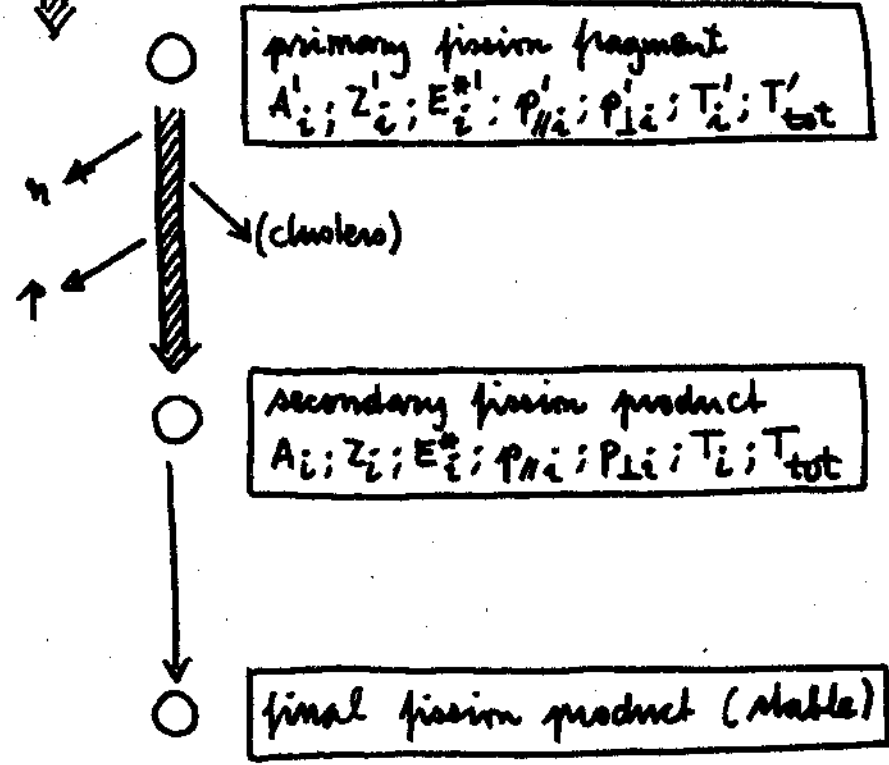 primary fission fragment
A'i; Z'i; E*'i; p'//i; p'⊥i; T'i; T'tot
n
(clusters)
p
secondary fission product
Ai; Zi; E*i; p//i; p⊥i; Ti; Ttot
final fission product (stable)